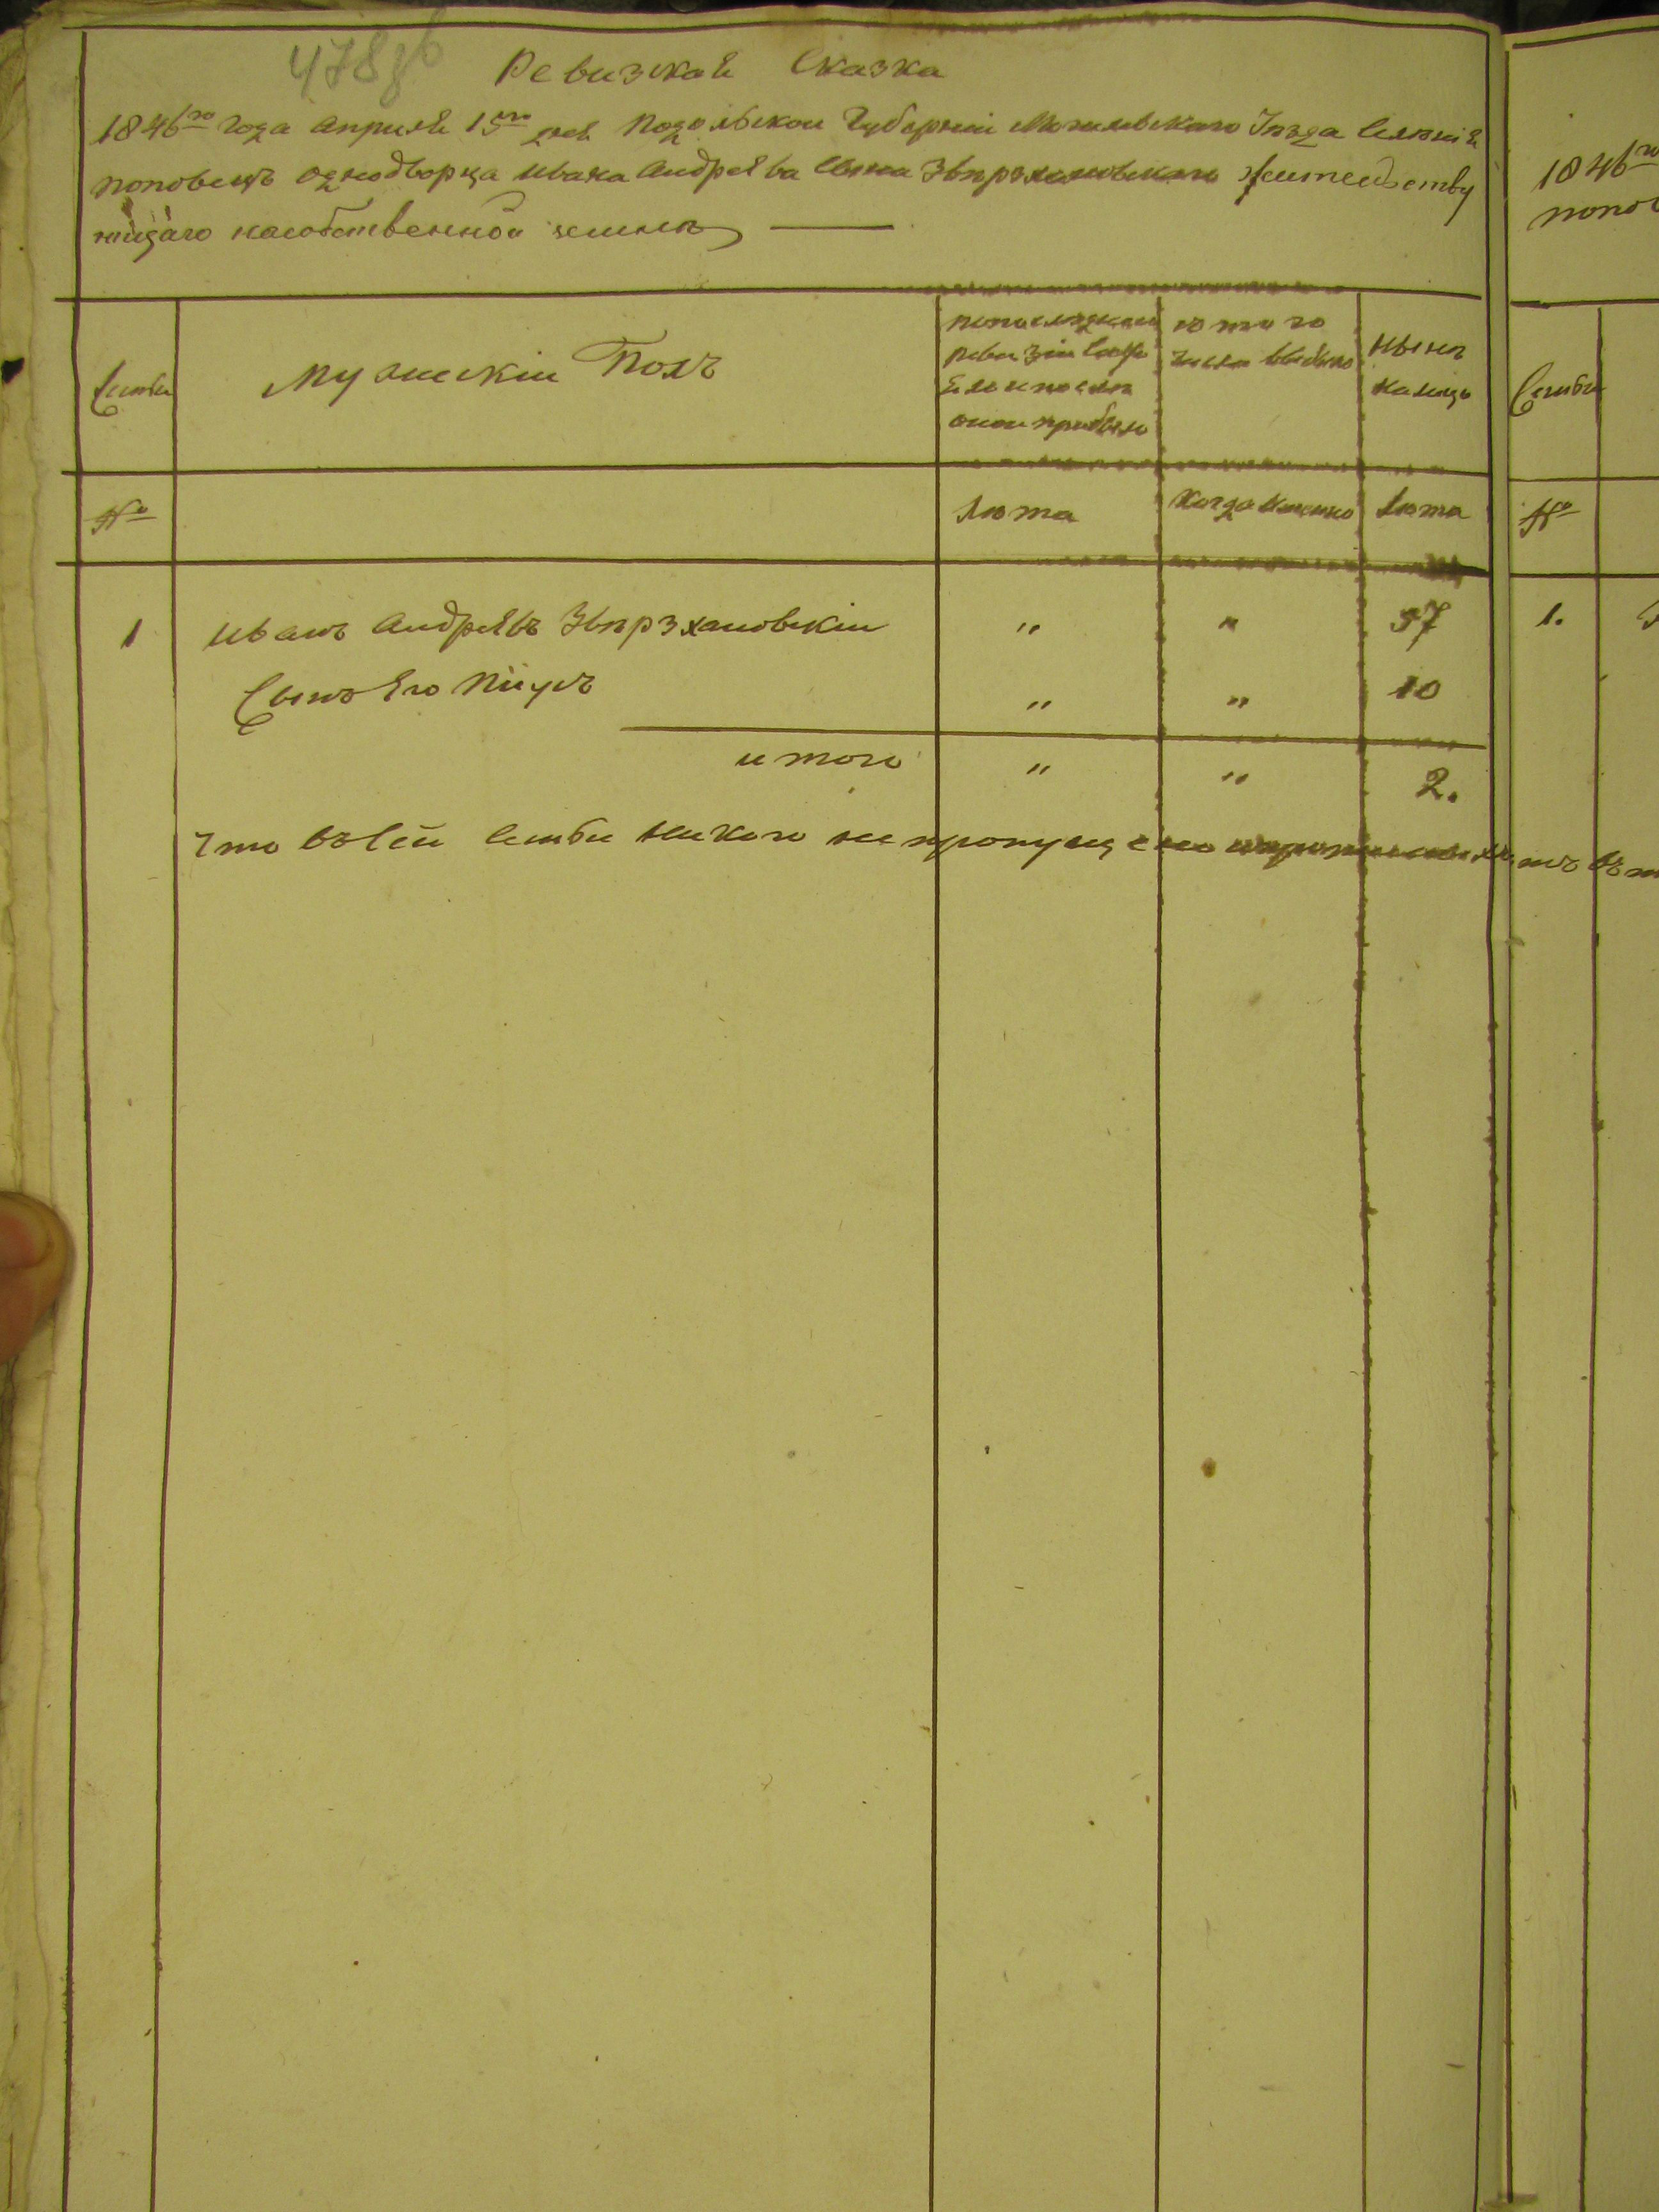 478 зв
Ревизкая Сказка
1846го года априля 15го дня Подольской Губерній Могилевскаго Уезда Селѣнія
поповецъ однодворца Ивана Андреява Сына Звѣрзхановскаго Жительству
ющаго насобственной земле
Семьи
Мужескій Полъ
попоследней
Ревизіи Состо
яло и после
оной прибыло
Изтого
числа выбыло
Нынѣ
налицо
Семьи
№
Лѣта
Когда именно
Лѣта
№
1
Иванъ Андреявъ Звѣрзхановскій
"
"
37
1.
Сынъ Его Піусъ
"
"
10
итого
"
"
2.
Что въ Сей Семьи Никого не пропущено
1846го
попов